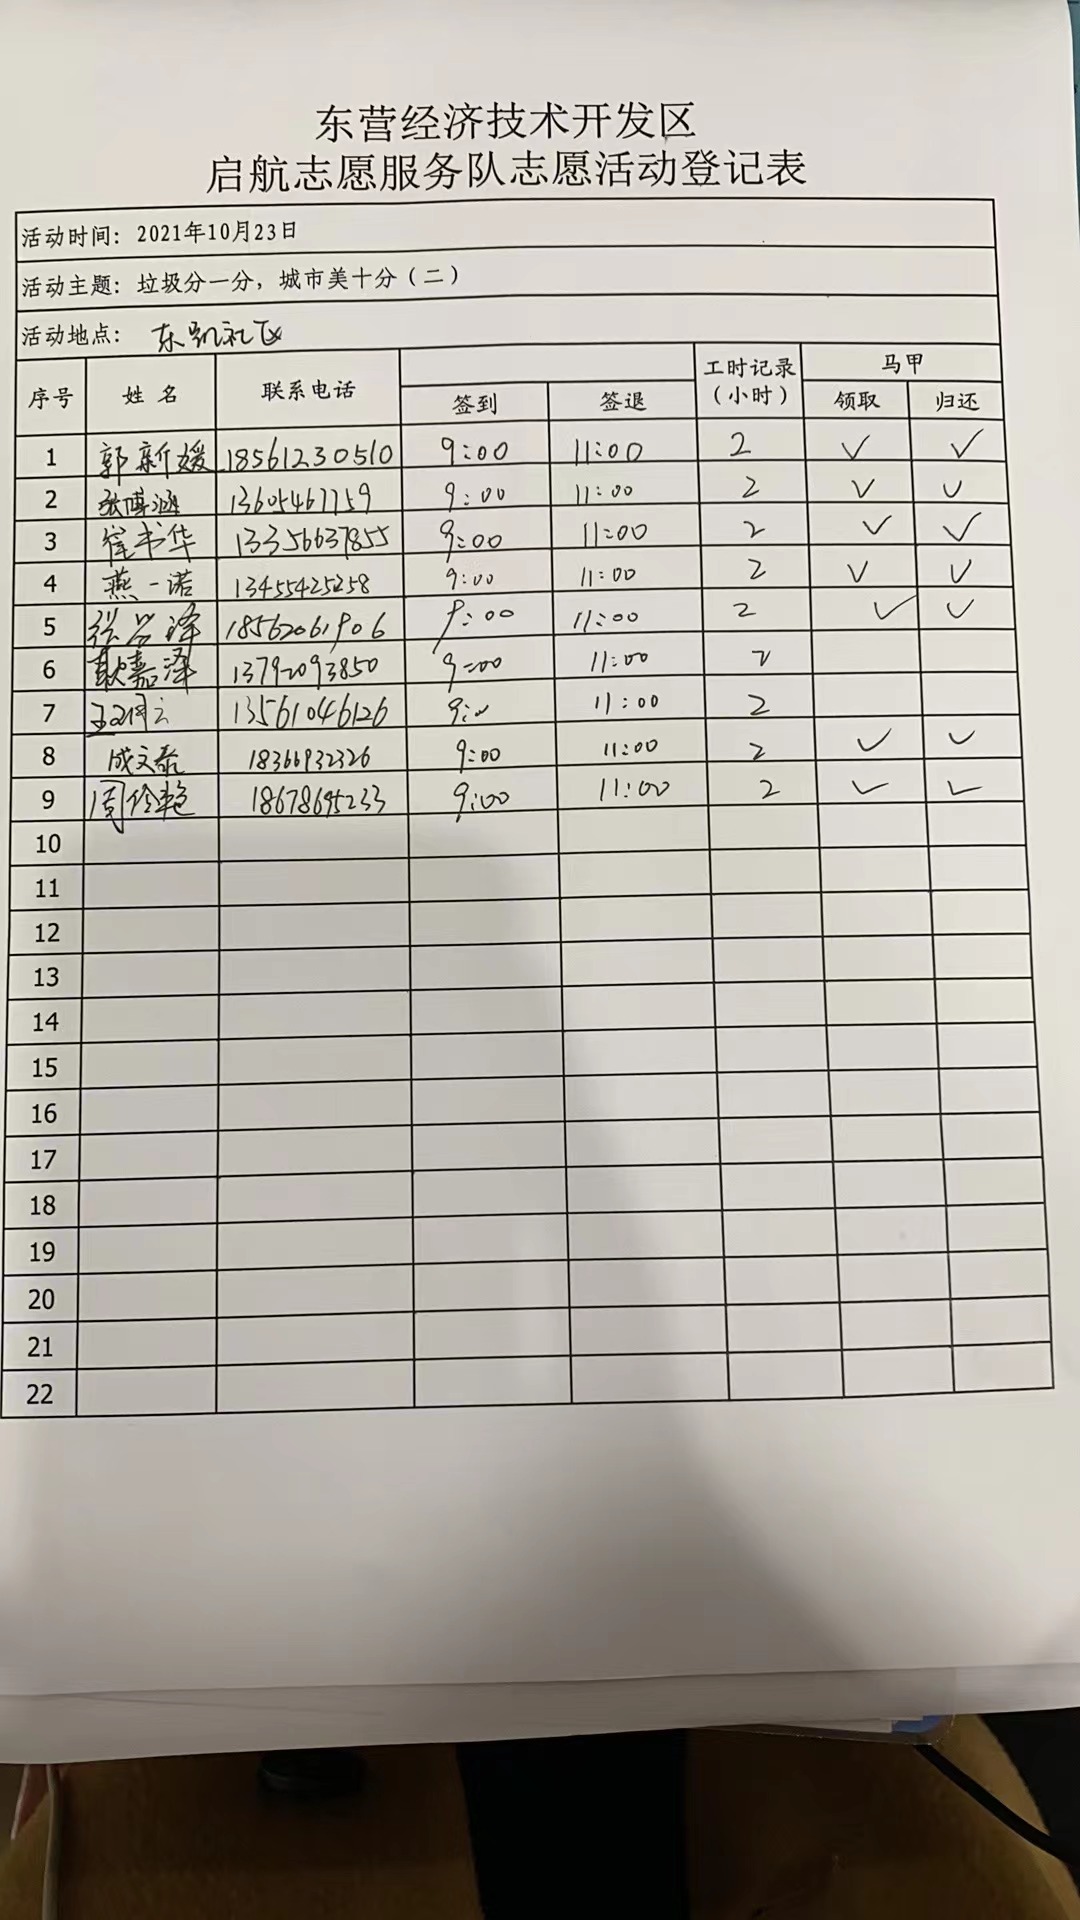 东营经济技术开发区
启航志愿服务队志愿活动登记表
活动时间：2021年10月23日
活动主题：垃圾分一分，城市美十分（二）
活动地点： 东凯社区
序号 姓 名 联系电话 签到 签退 工时记录（小时） 马甲 领取 归还
1 郭新媛 18561230510 9:00 11:00 2 ✓ ✓
2 张博涵 13605467759 9:00 11:00 2 ✓ ✓
3 崔书华 13356637855 9:00 11:00 2 ✓ ✓
4 燕一诺 13455425258 9:00 11:00 2 ✓ ✓
5 18562061906 9:00 11:00 2 ✓ ✓
6 耿嘉泽 13792093850 9:00 11:00 2
7 13561046126 11:00 2
8 成文泰 18366932326 9:00 11:00 2 ✓ ✓
9 18678695233 9:00 11:00 2 ✓ ✓
10
11
12
13
14
15
16
17
18
19
20
21
22